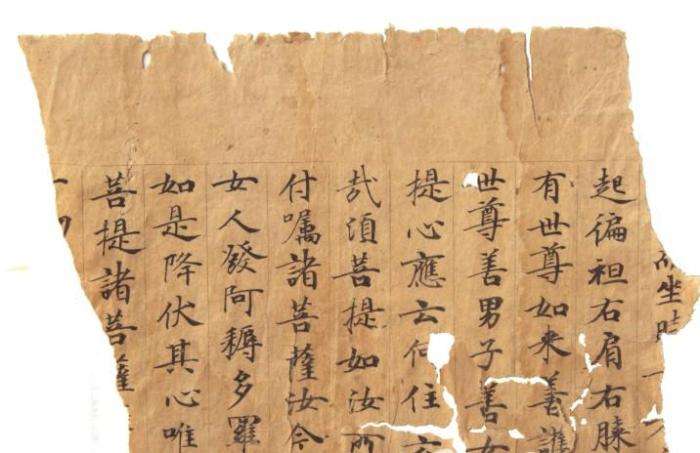 坐時
起徧袒右肩右膝
有世尊如来善護
世尊善男子善女
提心應云何住云
㢤須菩提如汝所
付囑諸菩薩汝今
女人發阿耨多羅
如是降伏其心唯
菩提諸菩薩